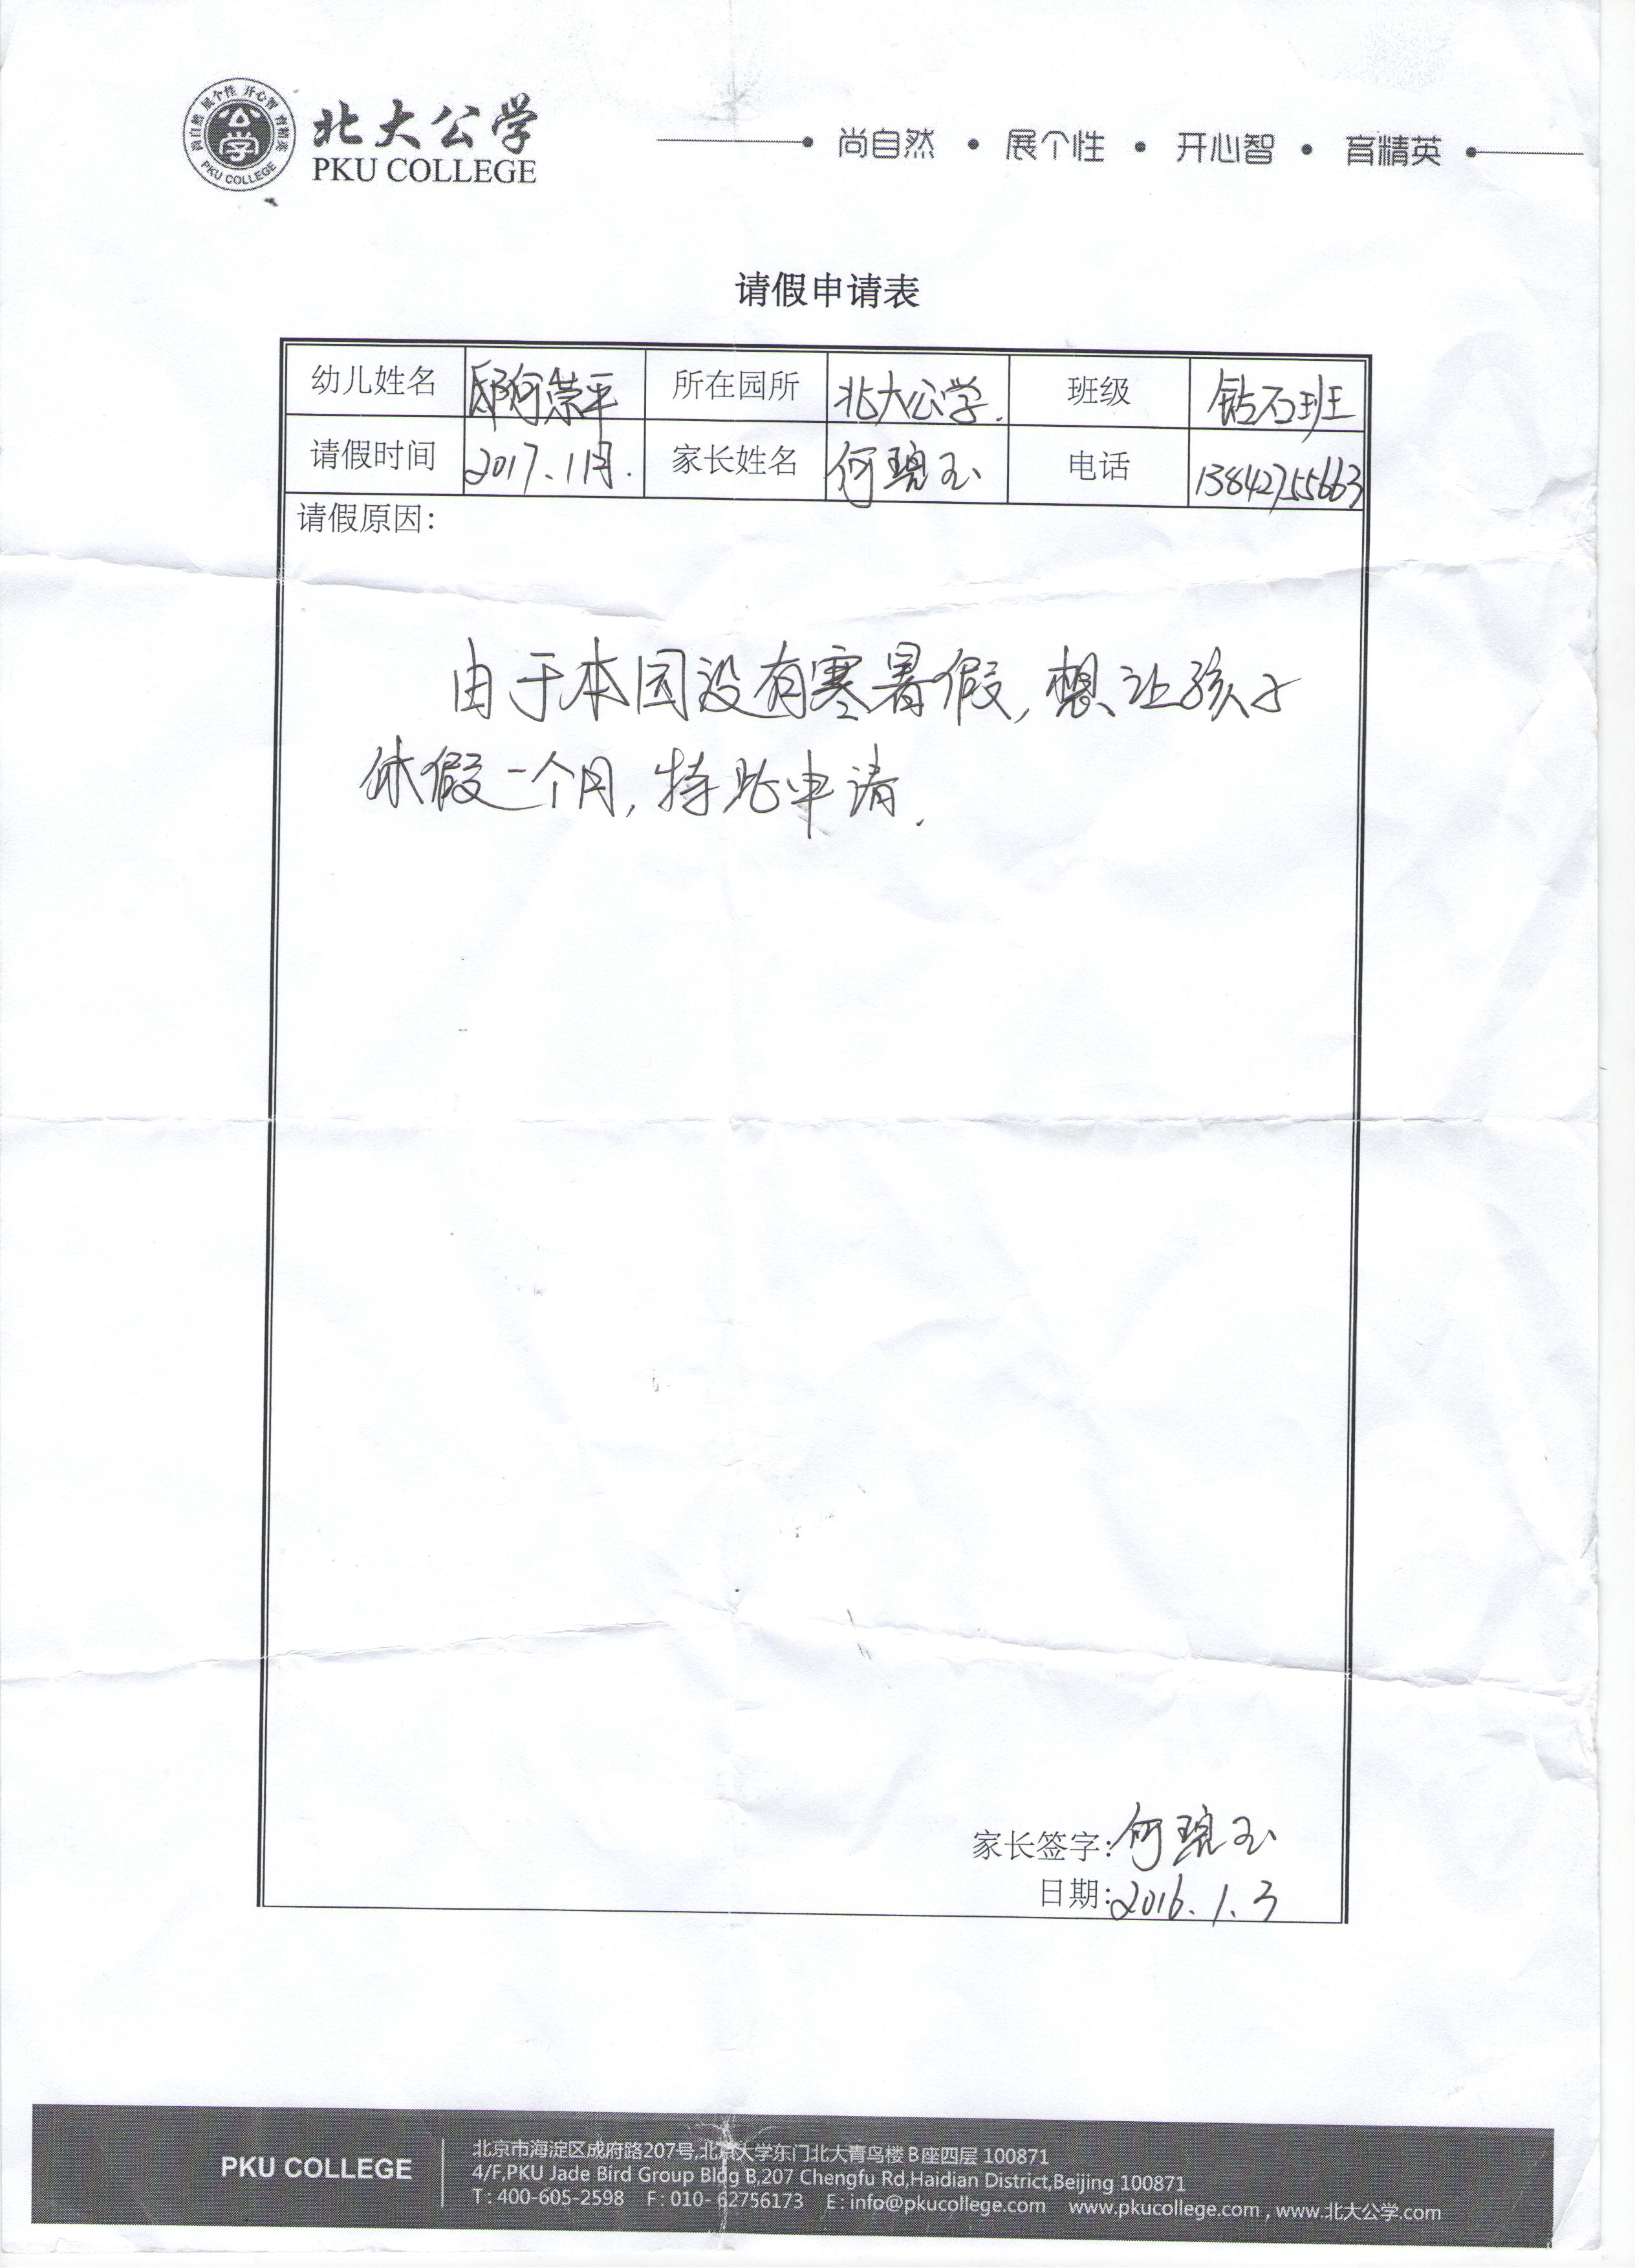 尚自然 展个性 开心智 育精英
公学
PKU COLLEGE
北大公学
PKU COLLEGE
尚自然 • 展个性 • 开心智 • 育精英
请假申请表
幼儿姓名 邸何荣平 所在园所 北大公学. 班级 钻石班
请假时间 2017.1月. 家长姓名 何碧玉 电话 13842755663
请假原因:
由于本园没有寒暑假,想让孩子
休假一个月,特此申请.
家长签字:何碧玉
日期:2016.1.3
PKU COLLEGE
北京市海淀区成府路207号,北京大学东门北大青鸟楼B座四层 100871
4/F,PKU Jade Bird Group Bldg B,207 Chengfu Rd,Haidian District,Beijing 100871
T:400-605-2598 F:010-62756173 E:info@pkucollege.com www.pkucollege.com , www.北大公学.com